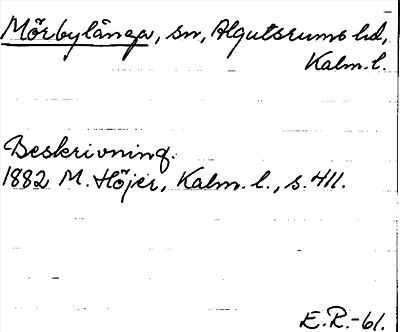 Mörbylånga, sn, Algutsrums hd,
Kalm. l.
Beskrivning.
1882 M. Höjer, Kalm. l., s. 411.
E.R.-61.